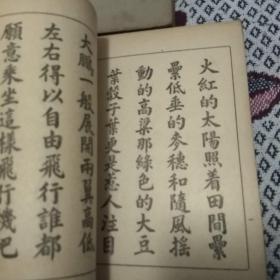 火紅的太陽照着田間纍
纍低垂的麥穗和隨風搖
動的高粱那綠色的大豆
葉殼子葉更是惹人注目
大鵬一般展開兩翼高低
左右得以自由飛行誰都
願意乘坐這樣飛行幾巴